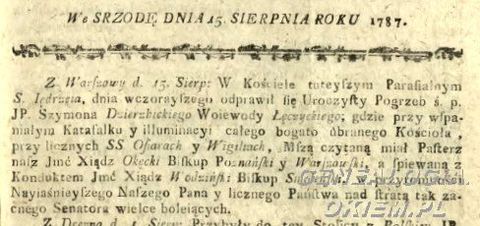 We SRZODĘ DNIA 15. SIERPNIA ROKU 1787.
Z Warszawy d. 15. Sierp: W Kościele tuteyszym Parafialnym
S. Jędrzeia, dnia wczorayszego odprawił się Uroczysty Pogrzeb ś. p.
JP. Szymona Dzierzbickiego Woiewody Łęczyckiego; gdzie przy wspa-
niałym Katafalku y illuminacyi całego bogato óbranego Kościoła,
przy licznych SS Ofiarach y Wigiliach, Mszą czytaną miał Pasterz
nasz Jmć Xiądz Okęcki Biskup Poznański y Warszawski, a śpiewaną z
Konduktem Jmć Xiądz Wodziński Biskup przytomności
Nayiaśnieyszego Naszego Pana y licznego Państwa nad stratą tak za-
cnego Senatora wielce boleiących.
Z d. 1. Sierp: Przybyły do tey Stolicy z JP.
GENEALOGIA
OKIEM.PL